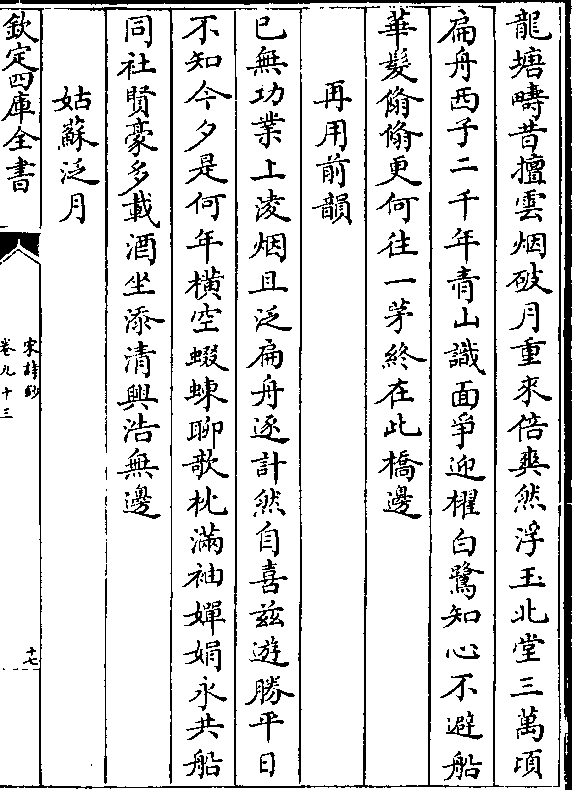 龍塘疇昔擅雲烟破月重來倍爽然浮玉北堂三萬頃
扁舟西子二千年青山識面爭迎櫂白鷺知心不避船
華髮翛翛更何往一茅終在此橋邊
再用前韻
已無功業上淩烟且泛扁舟逐計然自喜兹遊勝平日
不知今夕是何年橫空蝃蝀聊歌枕滿袖嬋娟永共船
同社賢豪多載酒坐添清興浩無邊
姑蘇泛月
欽定四庫全書
宋詩鈔
卷九十三
十七